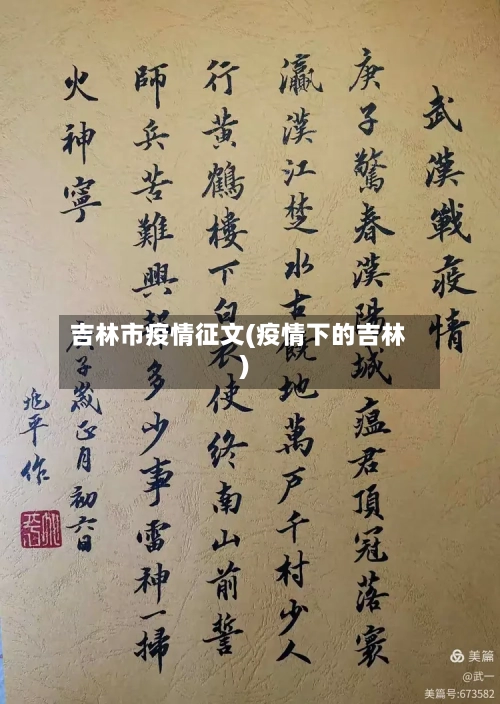 武漢戰疫情
庚子驚春漢陽城瘟君頂冠落寰
瀛漢江楚水古
地萬戶千村少人
行黃鶴樓下白衣使終南山前誓
師兵苦難興
多少事雷神一掃
火神寧
子歲正月初六日
兆平作
吉林市疫情征文(疫情下的吉林
)
美篇
@武一
美篇号:673582